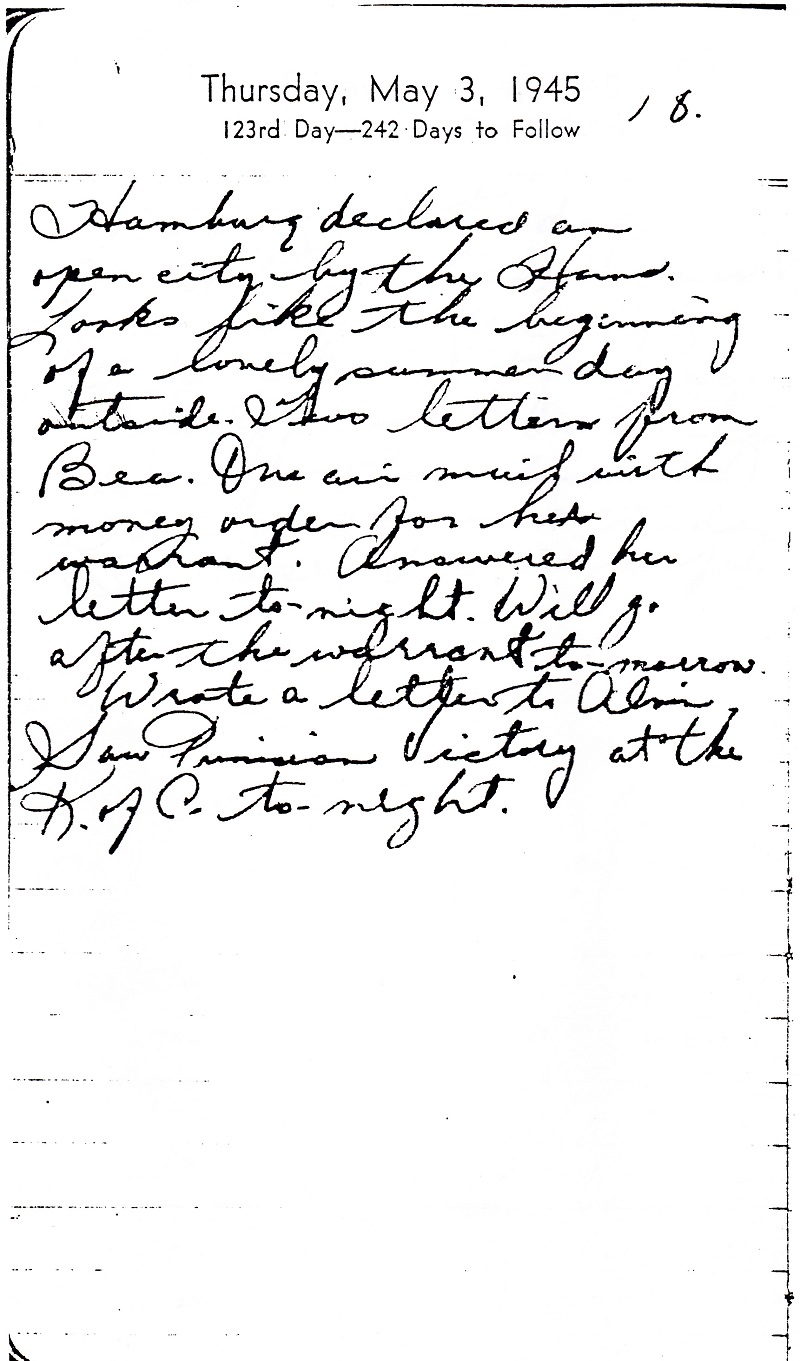 Thursday, May 3, 1945
18.
123rd Day—242 Days to Follow
Hamburg declared an
open city by the Huns.
Looks like the beginning
of a lovely summer day
outside. Two letters from
Bea. One air mail with
money order for her
warrant. Answered her
letter to-night. Will go
after the warrant to-morrow.
Wrote a letter to
Saw Tunisian Victory at the
K. of C. to-night.